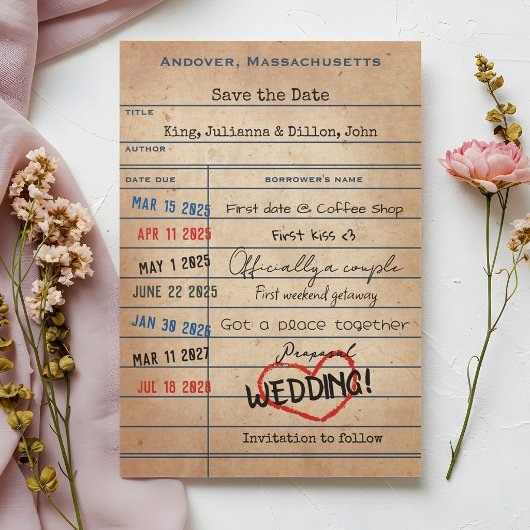 ANDOVER, MASSACHUSETTS
Save the Date
TITLE
King, Julianna & Dillon, John
AUTHOR
DATE DUE BORROWER'S NAME
MAR 15 2025 First date @ Coffee Shop
APR 11 2025 First Kiss <3
MAY 1 2025 Officially a couple
JUNE 22 2025 First weekend getaway
JAN 30 2026 Got a place together
MAR 11 2027 Proposal
JUL 18 2028 WEDDING!
Invitation to follow